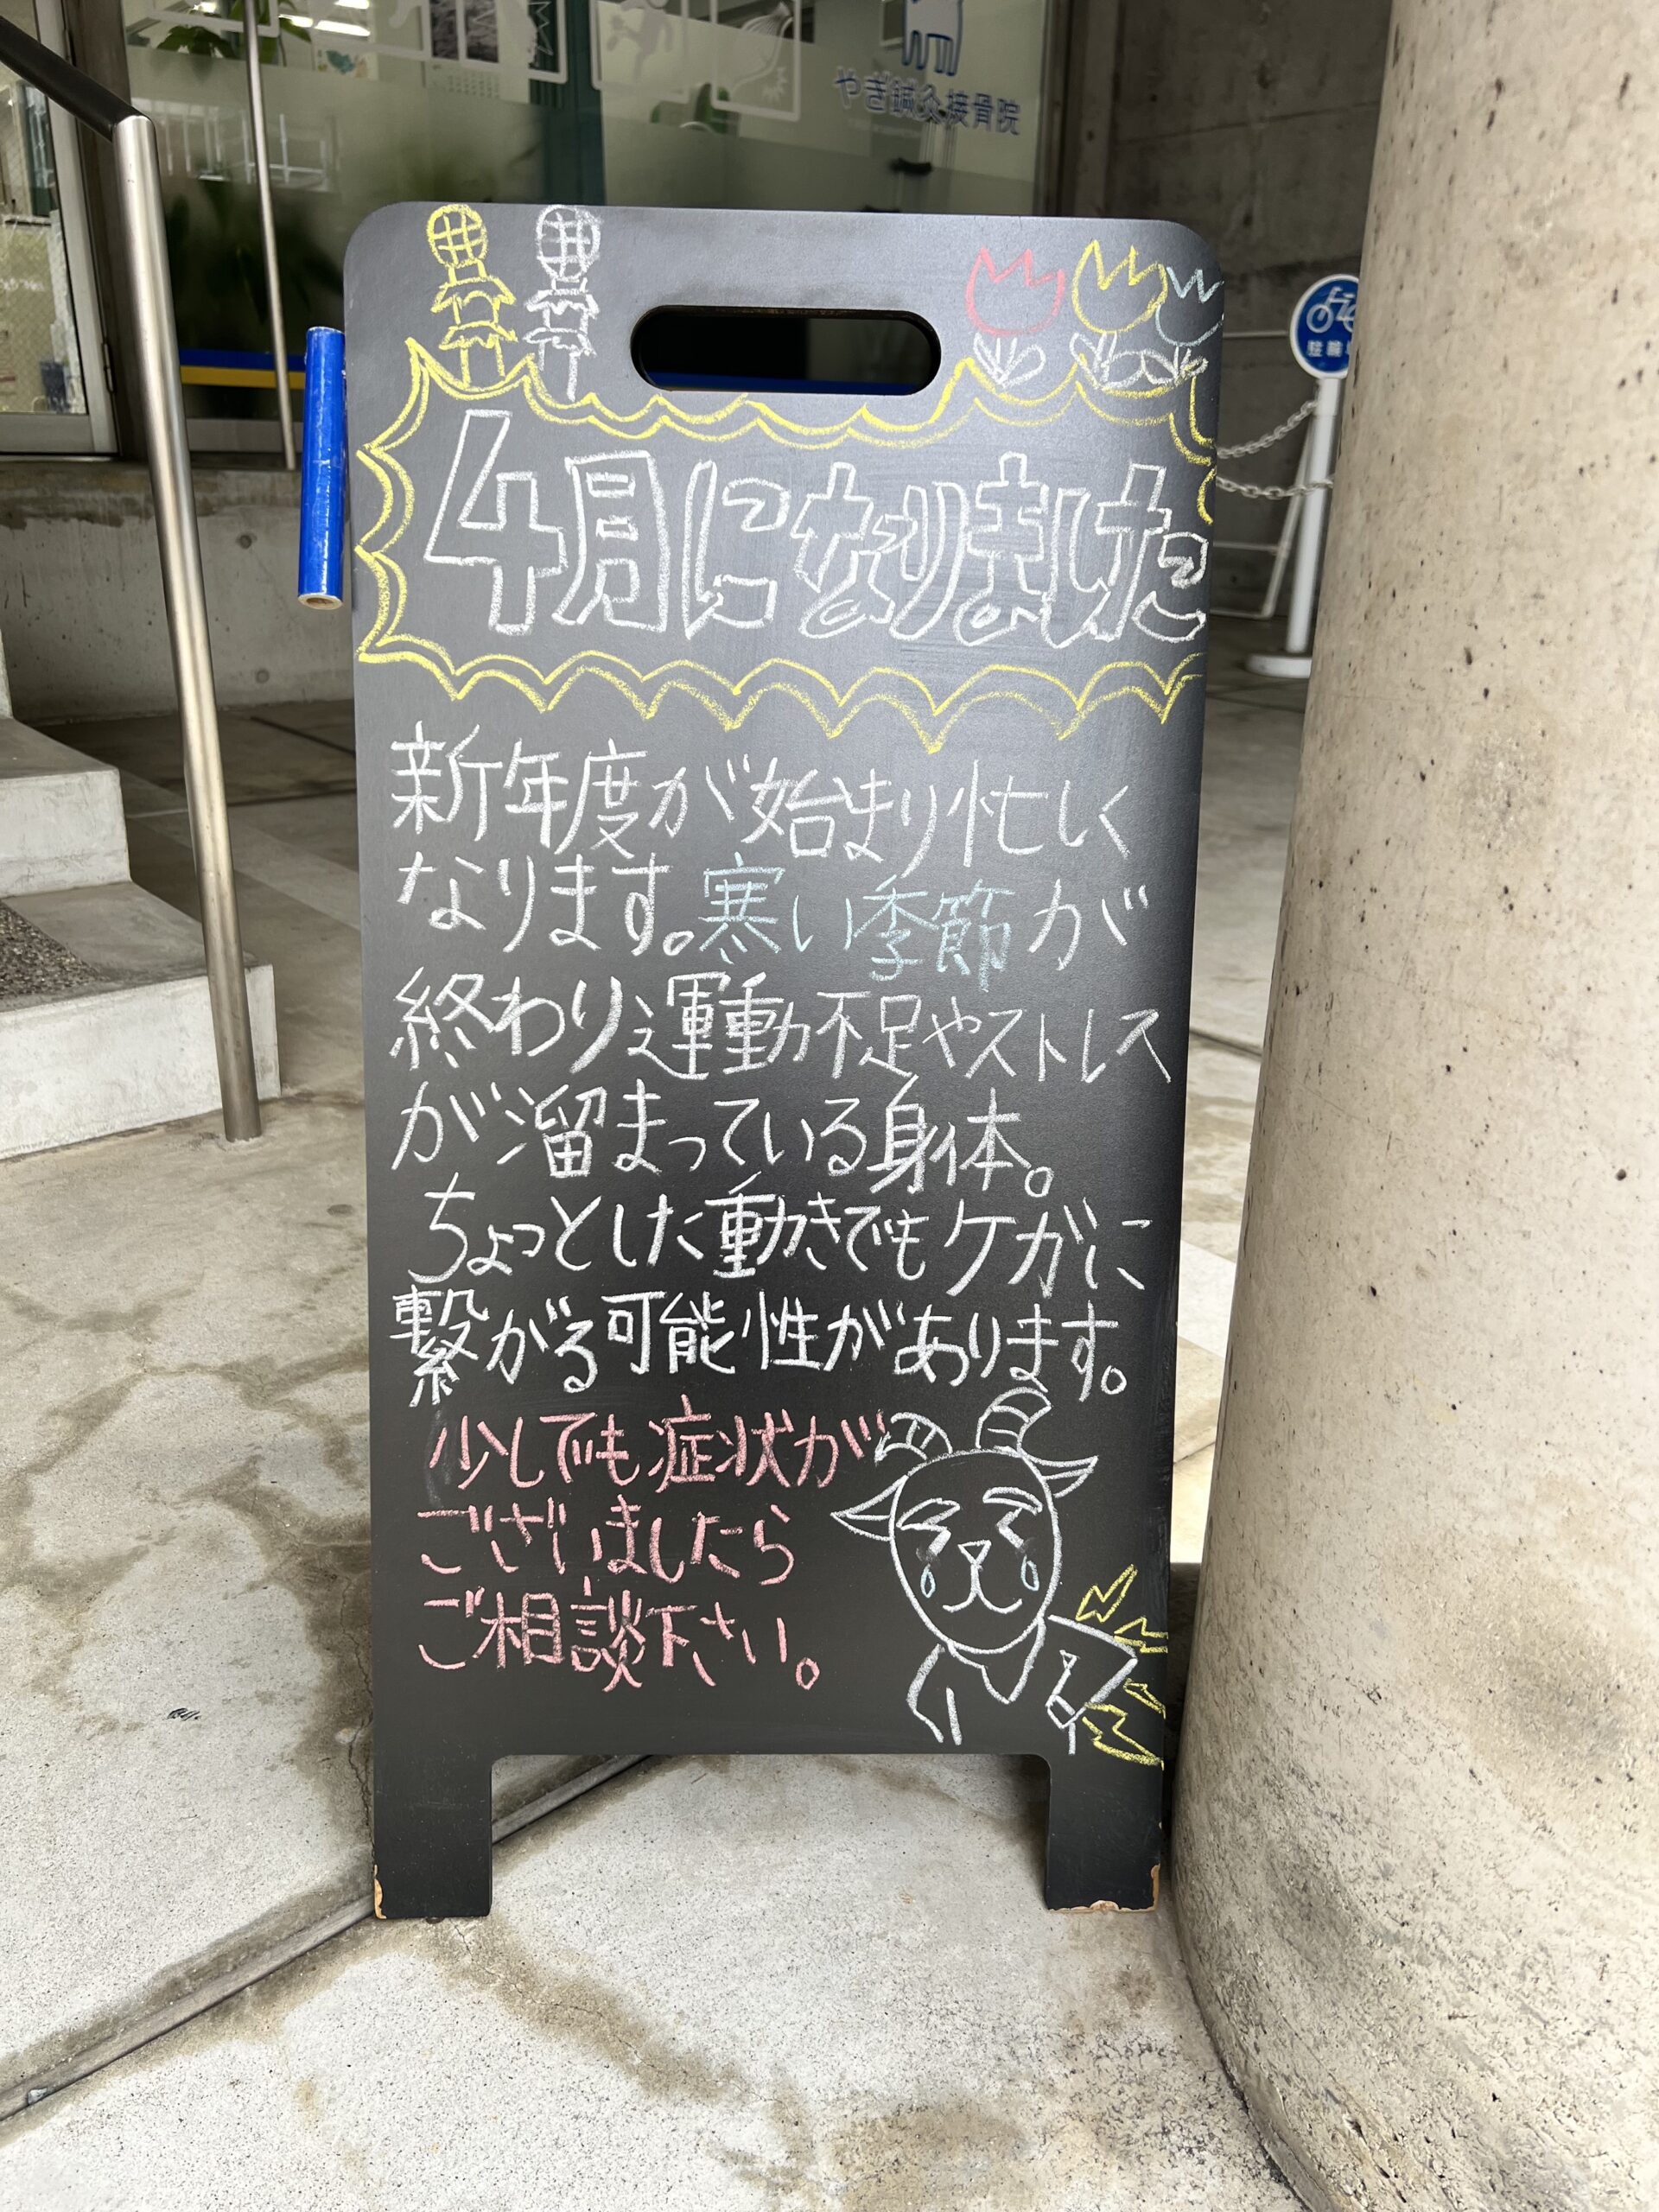 やぎ鍼灸接骨院
駐輪
4月になりました
新年度が始まり忙しく
なります。寒い季節が
終わり運動不足やストレス
が溜まっている身体。
ちょっとした動きでもケガに
繋がる可能性があります。
少しでも症状が
ございましたら
ご相談下さい。